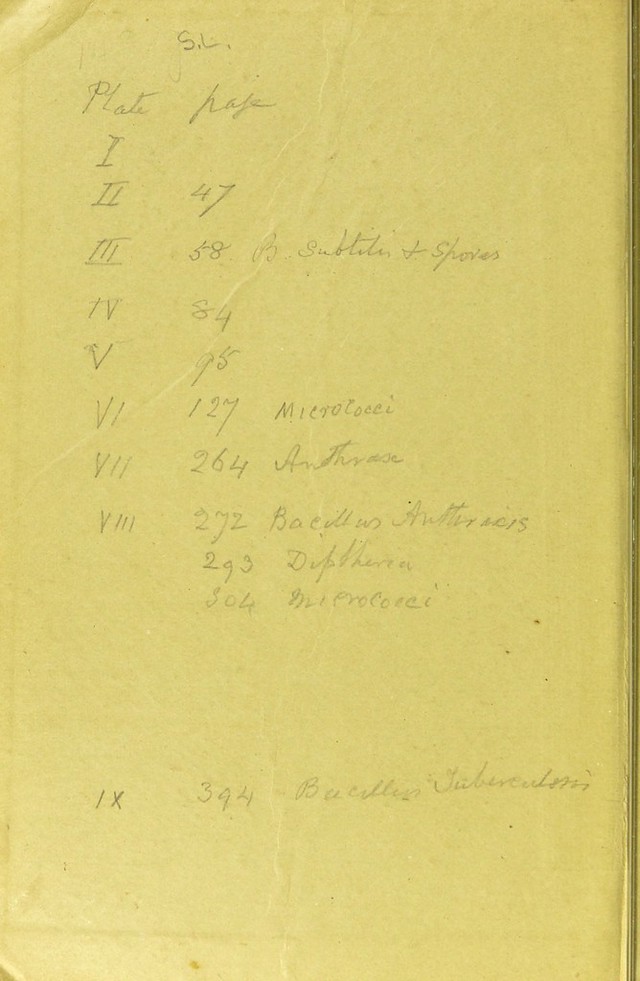 S.L.
Plate page
I
II 47
III 58 B. Subtilis + Spores
IV 84
V 95
VI 127 Micrococci
VII 264 Anthrax
VIII 272 Bacillus Anthracis
293 Diptheria
304 Micrococci
IX 394 Bacillus Tuberculosis